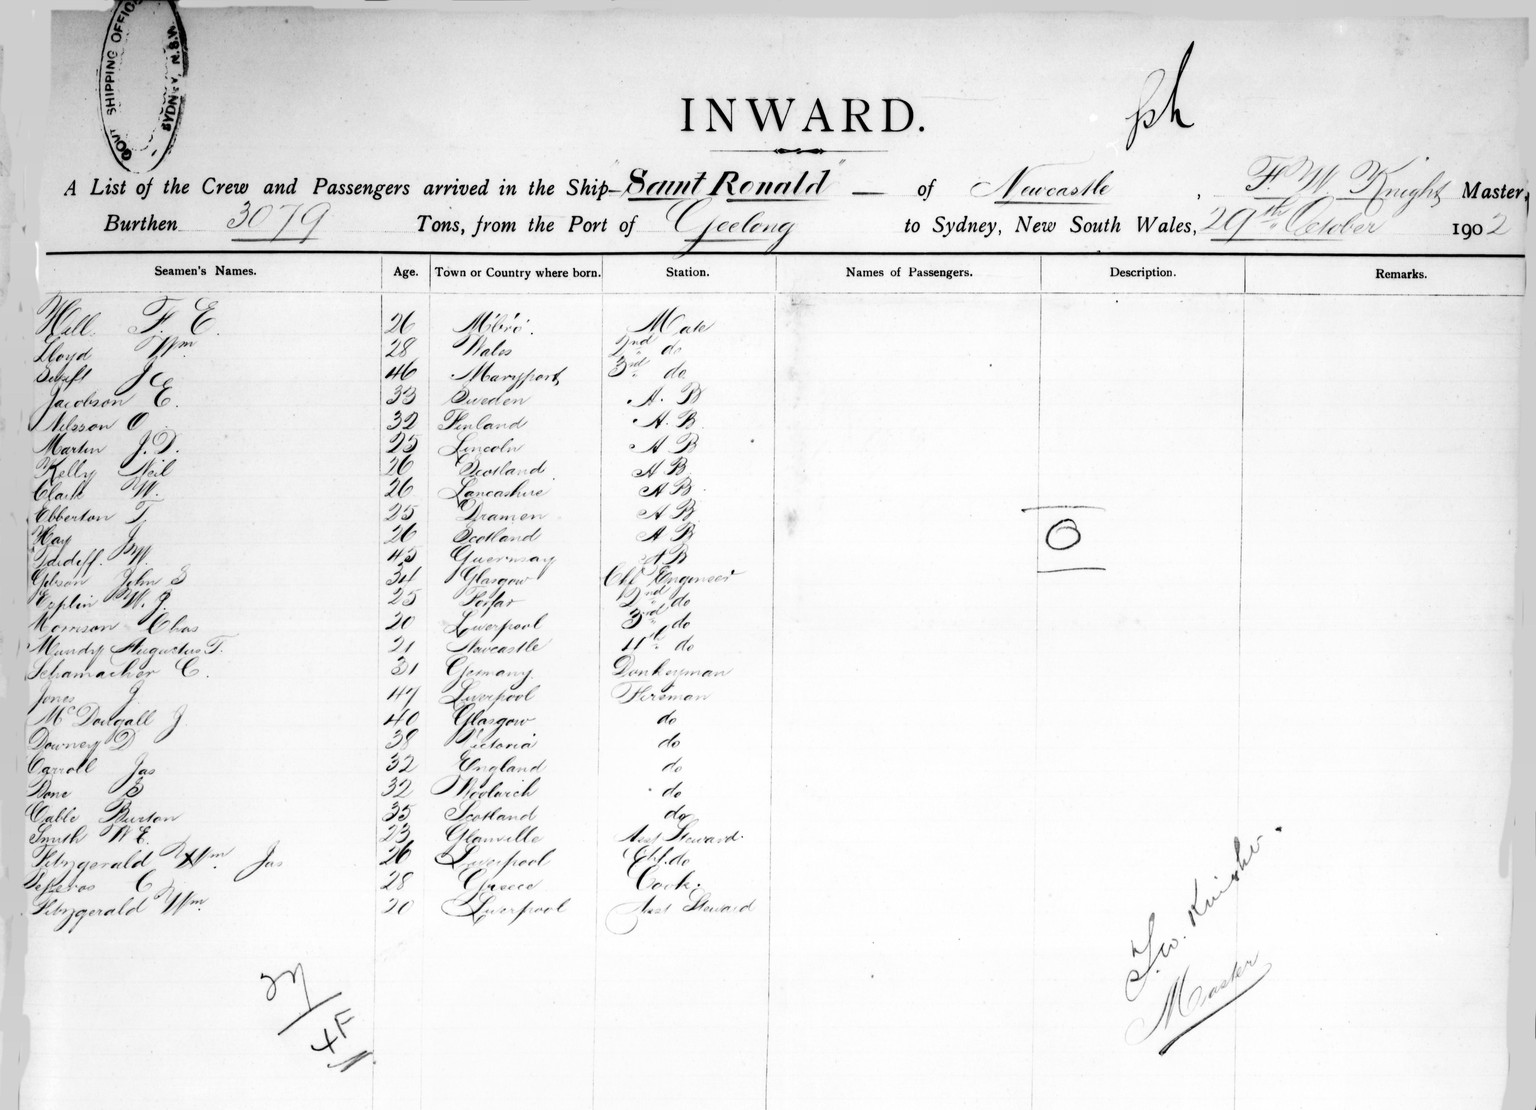 GOVT SHIPPING OFFICE
SYDNEY, N.S.W.
INWARD.
A List of the Crew and Passengers arrived in the Ship "Saint Ronald" — of Newcastle, F. W. Knight, Master,
Burthen 3079 Tons, from the Port of Geelong to Sydney, New South Wales, 29th October 1902
Seamen's Names. Age. Town or Country where born. Station. Names of Passengers. Description. Remarks.
Hill F. E. 26 M'bro'. Mate
Lloyd Wm 28 Wales 2nd do
Swift J 46 Maryport 3rd do
Jacobson C E. 33 Sweden A. B
Nilsson O 32 Finland A. B.
Martin J. D. 25 Lincoln A B
Kelly Neil 26 Scotland A B
Clark W. 26 Lancashire A B.
Ebberton T 25 Dramen A B
Hay J 26 Scotland A B
W. 45 Guernsay A B
Gibson John S 34 Glasgow Chf Engineer
Esplin W. J. 25 Forfar 2nd do
Morrison Chas 20 Liverpool 3rd do
Mundy Augustus T. 21 Newcastle 4th do
Schamacher C. 31 Germany. Donkeyman
Jones J. 47 Liverpool Fireman
McDougall J 40 Glasgow do
Downey D 38 Victoria do
Carroll Jas 32 England do
Done 32 Woolwich do
Cable Burton 35 Scotland do
Smith W E. 23 Glanville Asst Steward.
Fitzgerald Wm Jas 26 Liverpool Chf. do
C 28 Greece Cook.
Fitzgerald Wm. 20 Liverpool Asst Steward
O
27
F. W. Knight.
Master